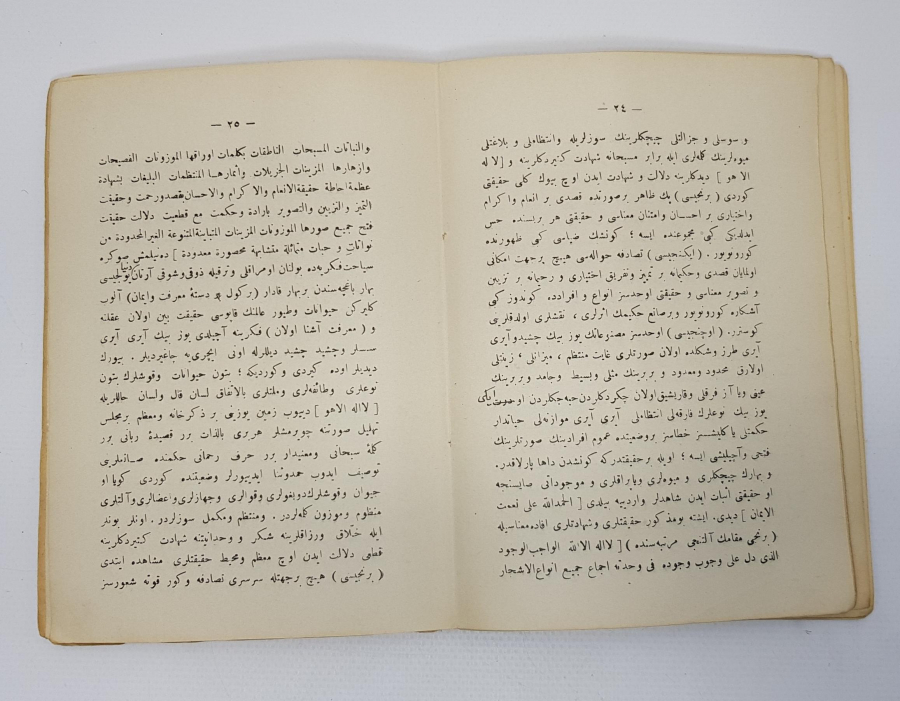 — ٢٤ —
و سوسلى و جزالتلى چيچكلرينك سوزلريله وانتظاملى و بلاغتلى
ميوه‌لرينك كلمه‌لرى ايله برابر مسبحانه شهادت كتيردكلرينه و [ لا اله
الا هو ] ديدكلرينه دلالت و شهادت ايدن اوچ بيوك كلى حقيقتى
كوردى ( برنجيسى ) پك ظاهر برصورتده قصدى بر انعام واكرام
واختيارى بر احسان وامتنان معناسى و حقيقتى هر بريسنده حس
ايدلديكى كبى مجموعنده ايسه ؛ كونشك ضياسى كبى ظهورنده
كورونويور . ( ايكنجيسى ) تصادفه حواله‌سى هيچ برجهت امكانى
اولمايان قصدى وحكيمانه بر تمييز وتفريق اختيارى و رحيمانه بر تزيين
و تصوير معناسى و حقيقتى اوحدسز انواع و افرادده كوندوز كبى
آشكاره كورونويور وبرصانع حكيمك اثرلرى ، نقشلرى اولدقلرينى
كوسترر. ( اوچنجيسى ) اوحدسز مصنوعاتك يوز بيك چشيدوآيرى
آيرى طرز وشكلده اولان صورتلرى غايت منتظم ، ميزانلى ، زينتلى
اولارق محدود ومعدود و بربرينك مثلى وبسيط وجامد وبربرينك
عينى ويا آز فرقلى وقاريشيق اولان چكردكلردن حبه‌جكلردن او ايكى
يوز بيك نوعلرك فارقه‌لى انتظاملى آيرى آيرى موازنه‌لى حياتدار
حكمتلى ياكليشسز خطاسز بروضعيتده عموم افرادينك صورتلرينك
فتحى وآچيليشى ايسه ؛ اويله برحقيقتدركه كونشدن داها پارلاقدر.
و بهارك چيچكلرى و ميوه‌لرى وياپراقلرى و موجوداتى صاييسنجه
او حقيقتى اثبات ايدن شاهدلر وارديييه بيلدى [ الحمدالله على نعمت
الايمان ] ديدى. ايشته بومذكور حقيقتلرى وشهادتلرى افاده معناسيله
( برنجى مقامك آلتنجى مرتبه‌سنده ) [ لااله الاالله الواجب الوجود
الذى دل على وجوب وجوده فى وحدته اجماع جميع انواع الاشجار
— ٢٥ —
والنباتات المسبحات الناطقات بكلمات اوراقها الموزونات الفصيحات
وازهارها المزينات الجزيلات واثمارها المنتظمات البليغات بشهادة
عظمة احاطة حقيقة الانعام والاكرام والاحسان بقصدورحمت وحقيقت
التميز والتزيين والتصوير بارادة وحكمت مع قطعيت دلالت حقيقت
فتح جميع صورها الموزونات المزينات المتباينة المتنوعة الغيرالمحدودة من
نواتات و حبات متماثلة متشابهة محصورة معدودة ] ده‌نيلمش صوكره
سياحت فكريه‌ده بولنان اومراقلى و ترقيله ذوقى وشوقى آرتان دنيا يولجيسى
بهار باغچه‌سندن بربهار قادار ( بركول دستهٔ معرفت وايمان ) آلوب
كايركن حيوانات وطيور عالمنك قاپوسى حقيقت بين اولان عقلنه
و ( معرفت آشنا اولان ) فكرينه آچيلدى يوز بيك آيرى آيرى
سسلر وچشيد چشيد ديللرله اونى ايچرى‌يه چاغيرديلر . بيورك
ديديلر اوده كيردى وكورديكه ؛ بتون حيوانات وقوشلرك بتون
نوعلرى وطائفه‌لرى وملتلرى بالاتفاق لسان قال ولسان حاللريله
[ لااله الاهو ] دييوب زمين يوزينى بر ذكرخانه ومعظم برمجلس
تهليل صورتنه چويرمشلر هربرى بالذات برر قصيدهٔ ربانى برر
كلمهٔ سبحانى ومعنيدار برر حرف رحمانى حكمنده صانعلرينى
توصيف ايدوب حمدوثنا ايدييورلر وضعيتنده كوردى كويا او
حيوان وقوشلرك دويغولرى وقوالرى وجهازلرى واعضالرى وآلتلرى
منظوم وموزون كلمه‌لردر . ومنتظم ومكمل سوزلردر. اونلر بونلر
ايله خلاق ورزاقلرينه شكر و وحدانيتنه شهادت كتيردكلرينه
قطعى دلالت ايدن اوچ معظم ومحيط حقيقتلرى مشاهده ايتدى
( برنجيسى ) هيچ برجهتله سرسرى تصادفه وكور قوته شعورسز